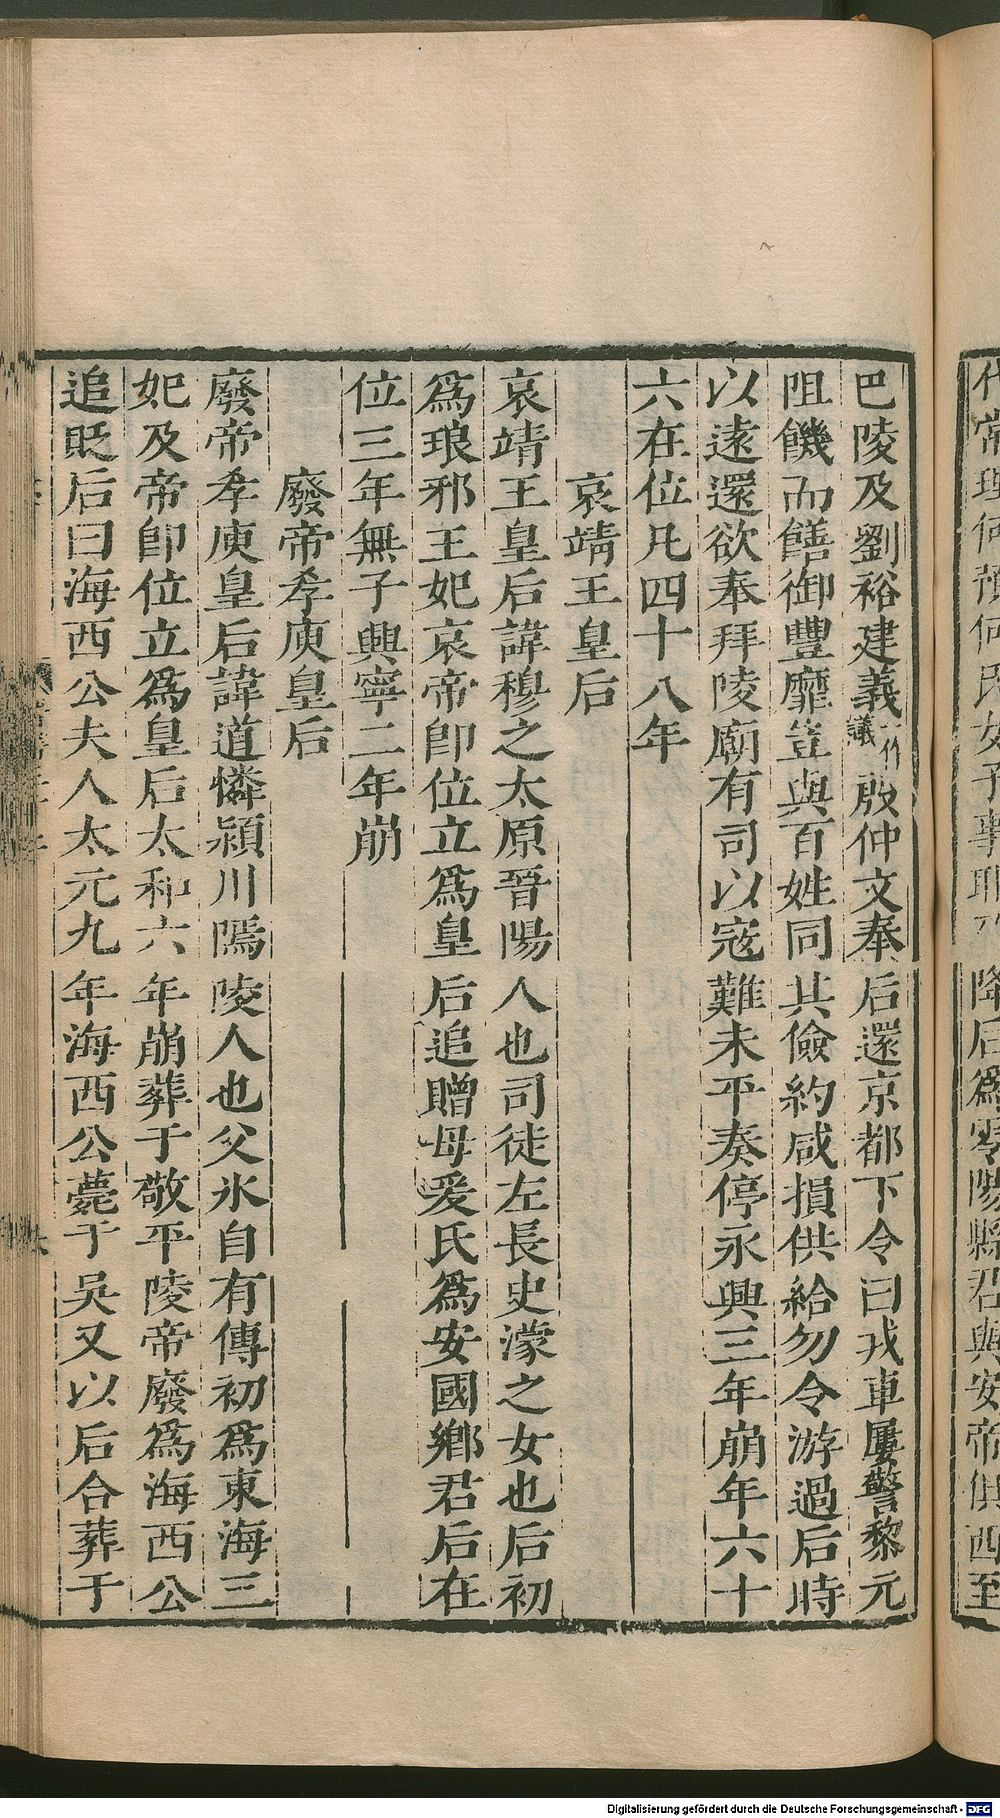 代常理何預何氏女子事耶 降后爲零陵縣君與安帝俱西至
巴陵及劉裕建義一作議殷仲文奉后還京都下令曰戎車屢警黎元
阻饑而饍御豐靡豈與百姓同其儉約咸損供給勿令游過后時
以遠還欲奉拜陵廟有司以寇難未平奏停永興三年崩年六十
六在位凡四十八年
哀靖王皇后
哀靖王皇后諱穆之太原晉陽人也司徒左長史濛之女也后初
爲琅邪王妃哀帝即位立爲皇后追贈母爰氏爲安國鄉君后在
位三年無子興寧二年崩
廢帝孝庾皇后
廢帝孝庾皇后諱道憐潁川隝陵人也父氷自有傳初爲東海三
妃及帝即位立爲皇后太和六年崩葬于敬平陵帝廢爲海西公
追貶后曰海西公夫人太元九年海西公薨于吳又以后合葬于
Digitalisierung gefördert durch die Deutsche Forschungsgemeinschaft - DFG